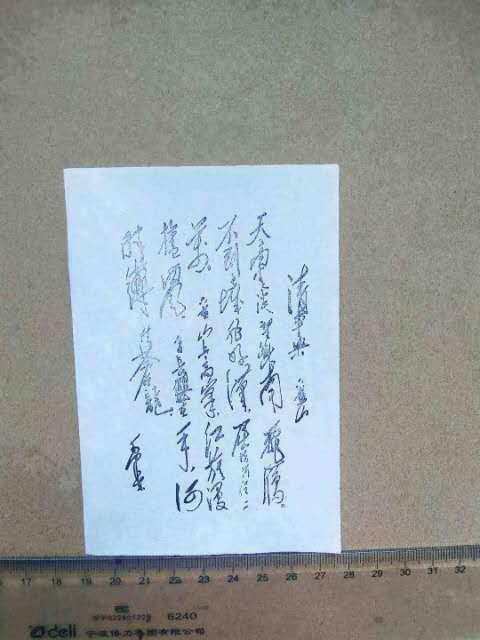 清平樂 六盤山
天高雲淡 望断南飛雁
不到長城非好漢 屈指行程二
萬 六盤山上高峯 紅旗漫
捲西風 今日長纓在手 何
時縛住蒼龍
毛泽东
17 18 19 20 21 22 23 24 25 26 27 28 29 30 31 32
deli 6240